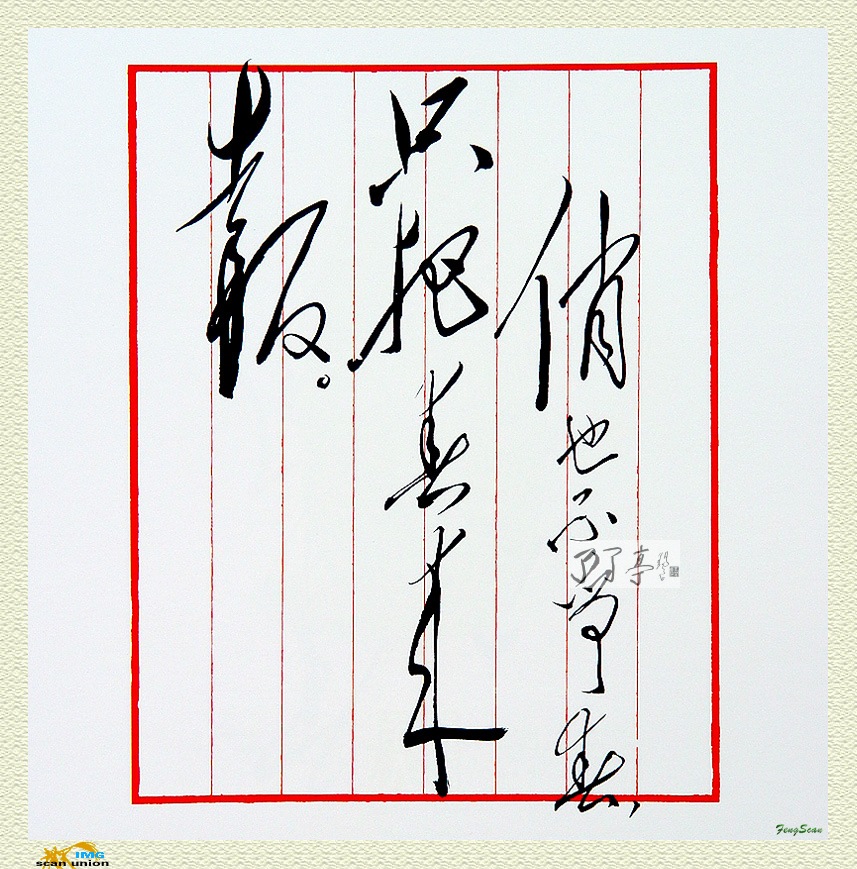 俏也不争春，
只把春来
报。
了了亭
FengScan
IMG
scan union